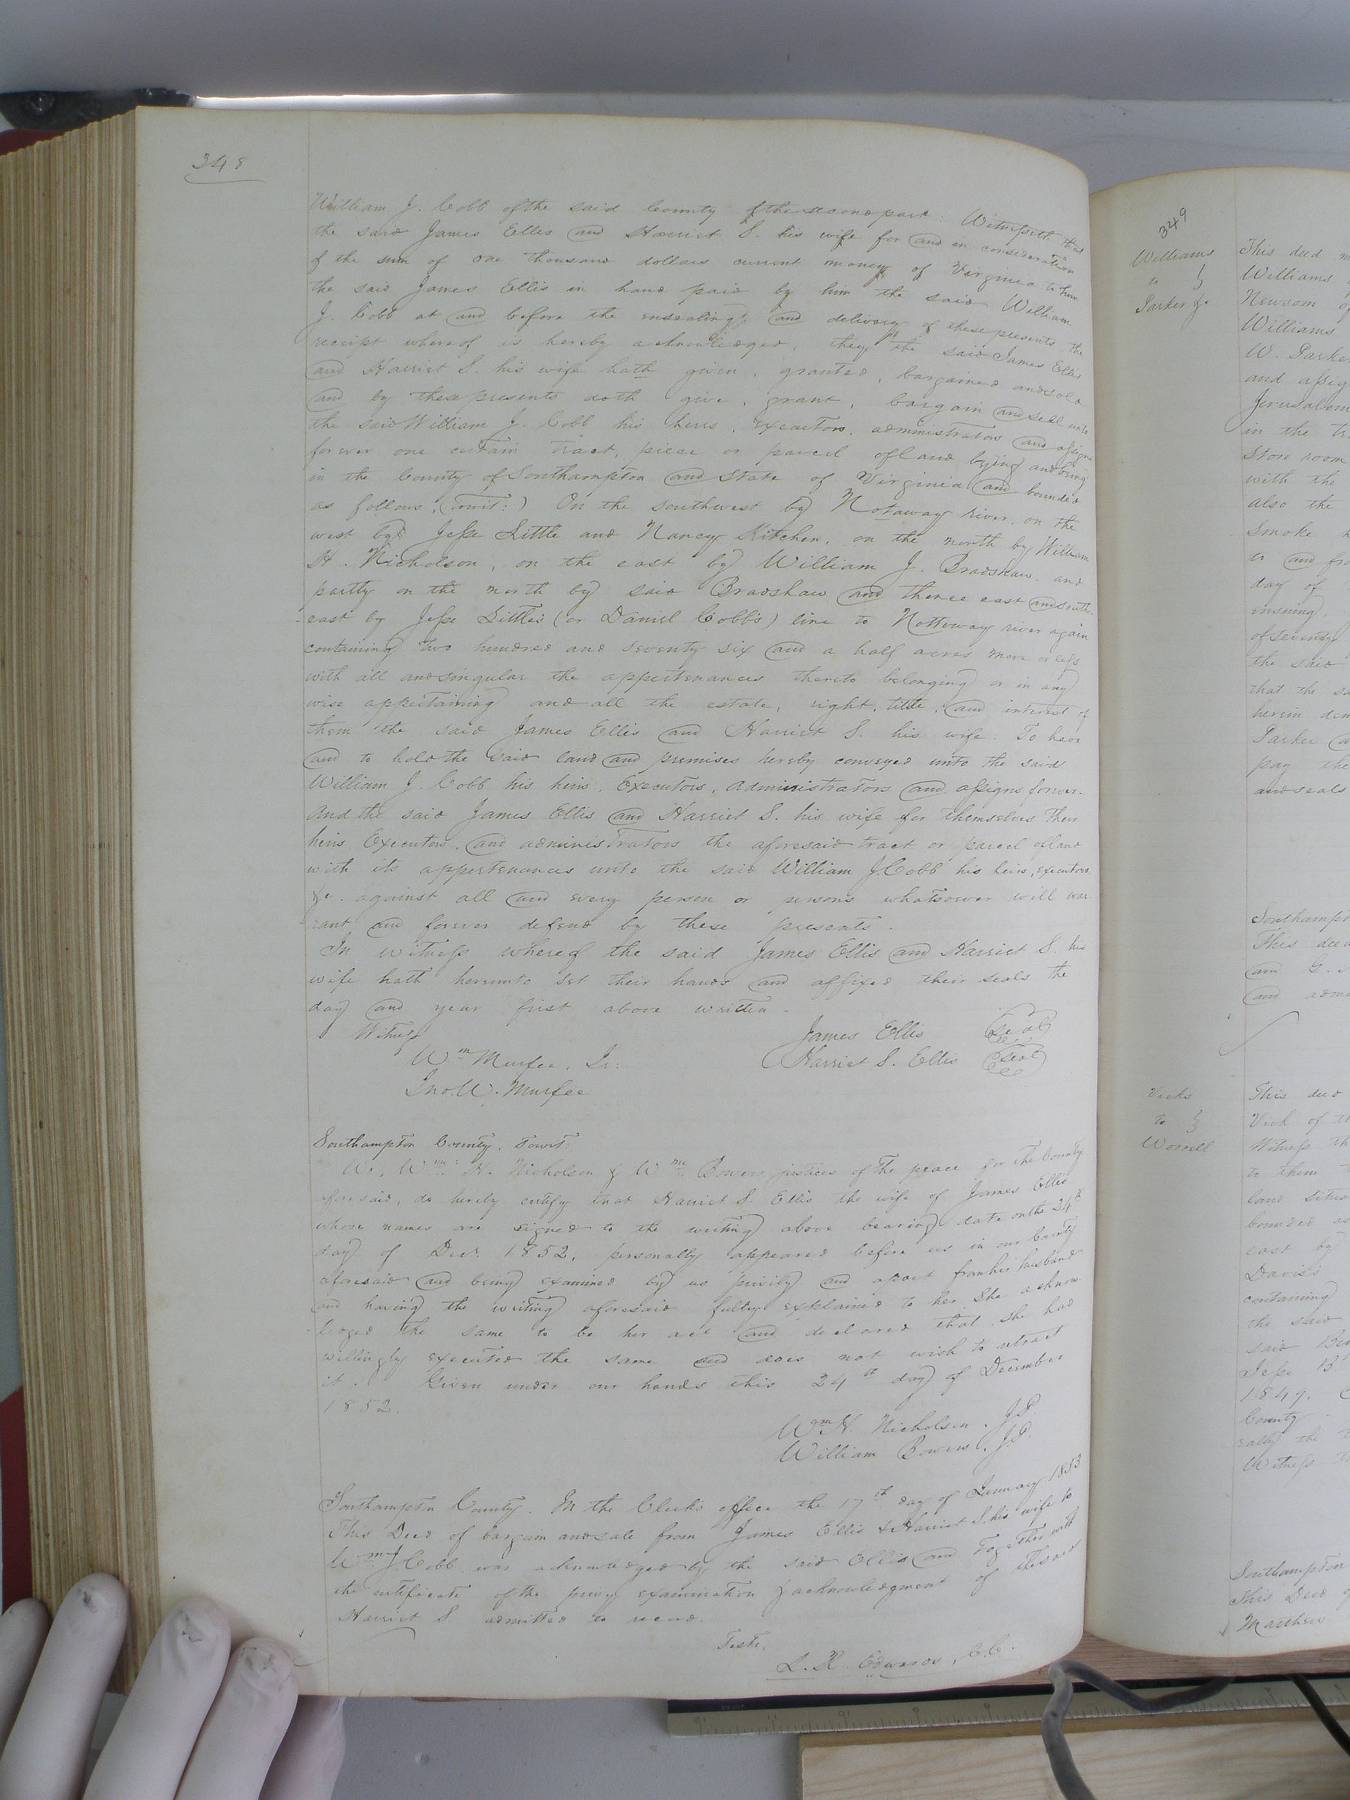 348
William J. Cobb of the said County of the second part. Witnesseth that
the said James Ellis and Harriet S. his wife for and in consideration
of the sum of one thousand dollars current money of Virginia to him
the said James Ellis in hand paid by him the said William
J. Cobb at and before the ensealing and delivery of these presents the
receipt whereof is hereby acknowledged, they the said James Ellis
and Harriet S. his wife hath given, granted, bargained and sold
and by these presents doth give, grant, bargain and sell unto
the said William J. Cobb his heirs, Executors, administrators and assigns
forever one certain tract, piece or parcel of land lying and being
in the County of Southampton and State of Virginia and bounded
as follows, (towit:) On the southwest by Notaway river, on the
west by Jesse Little and Nancy Kitchen, on the north by William
H. Nicholson, on the east by William J. Bradshaw and
partly on the north by said Bradshaw and thence east and south
east by Jesse Littles (or Daniel Cobb's) line to Nottoway river again
containing two hundred and seventy six and a half acres more or less
with all and singular the appertenances thereto belonging or in any
wise appertaining and all the estate, right, title, and interest of
them the said James Ellis and Harriet S. his wife. To have
and to hold the said land and premises hereby conveyed unto the said
William J. Cobb his heirs, Executors, administrators and assigns forever.
And the said James Ellis and Harriet S. his wife for themselves their
heirs Executors, and administrators the aforesaid tract or parcel of land
with its appertenances unto the said William J. Cobb his heirs, executors
&c. against all and every person or persons whatsoever will war
rant and forever defend by these presents.
In witness whereof the said James Ellis and Harriet S. his
wife hath hereunto set their hands and affixed their seals the
day and year first above written.
Witness
James Ellis Seal
Wm Murfee, Sr.
Harriet S. Ellis Seal
Jno. W. Murfee
Southampton County, Towit.
We, Wm H. Nicholson & Wm Bowers justices of the peace for the County
aforesaid, do hereby certify that Harriet S. Ellis the wife of James Ellis
whose names are signed to the writing above bearing date on the 24th
day of Decr. 1852, personally appeared before us in our County
aforesaid and being examined by us privily and apart from her husband
and having the writing aforesaid fully explained to her She acknow
leged the same to be her act and declared that She had
willingly executed the same and does not wish to retract
it. Given under our hands this 24th day of December
1852.
Wm H. Nicholson. JP
William Bowers. JP.
Southampton County. In the Clerk's office the 17th day of January 1853
This Deed of bargain and sale from James Ellis & Harriet S. his wife to
Wm J Cobb was acknowledged by the said Ellis and together with
the certificate of the privy examination & acknowledgment of the said
Harriet S. admitted to record.
Teste,
L. R. Edwards, C.C.
349
Williams
to
Parker &c
This deed
Williams
Newsom
Williams
W. Parker
and assig
Jerusalem
in the
Store room
with the
also the
Smoke
and
day of
ensuing.
of seventy
the said
that the
herein
Parker
pay the
and seals
Southampt
This deed
and
Vicks
to
Worrell
This deed
Vick of
Witness
to them
land
bounded
east by
Davis's
containing
the said
said
Jesse
1849.
County
Witness
Southampton
This Deed
Matthew